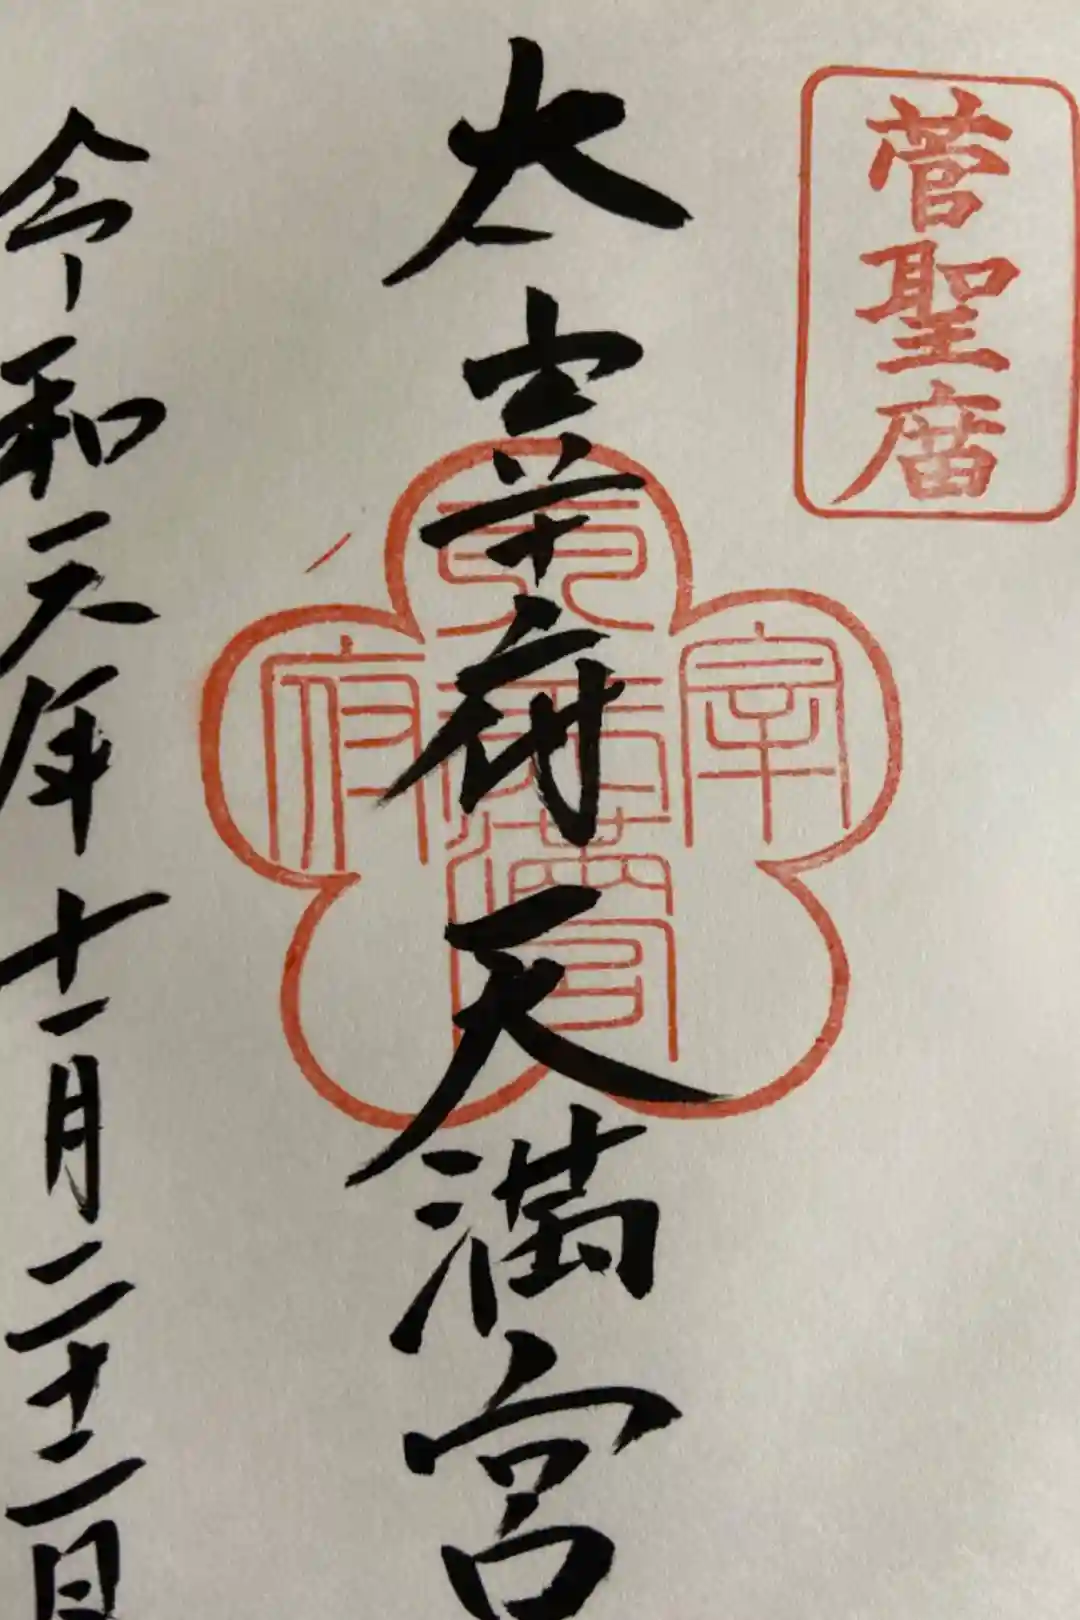 菅聖庿
太宰府天満宮
宰
府
天満宮
令和元年十一月二十二日